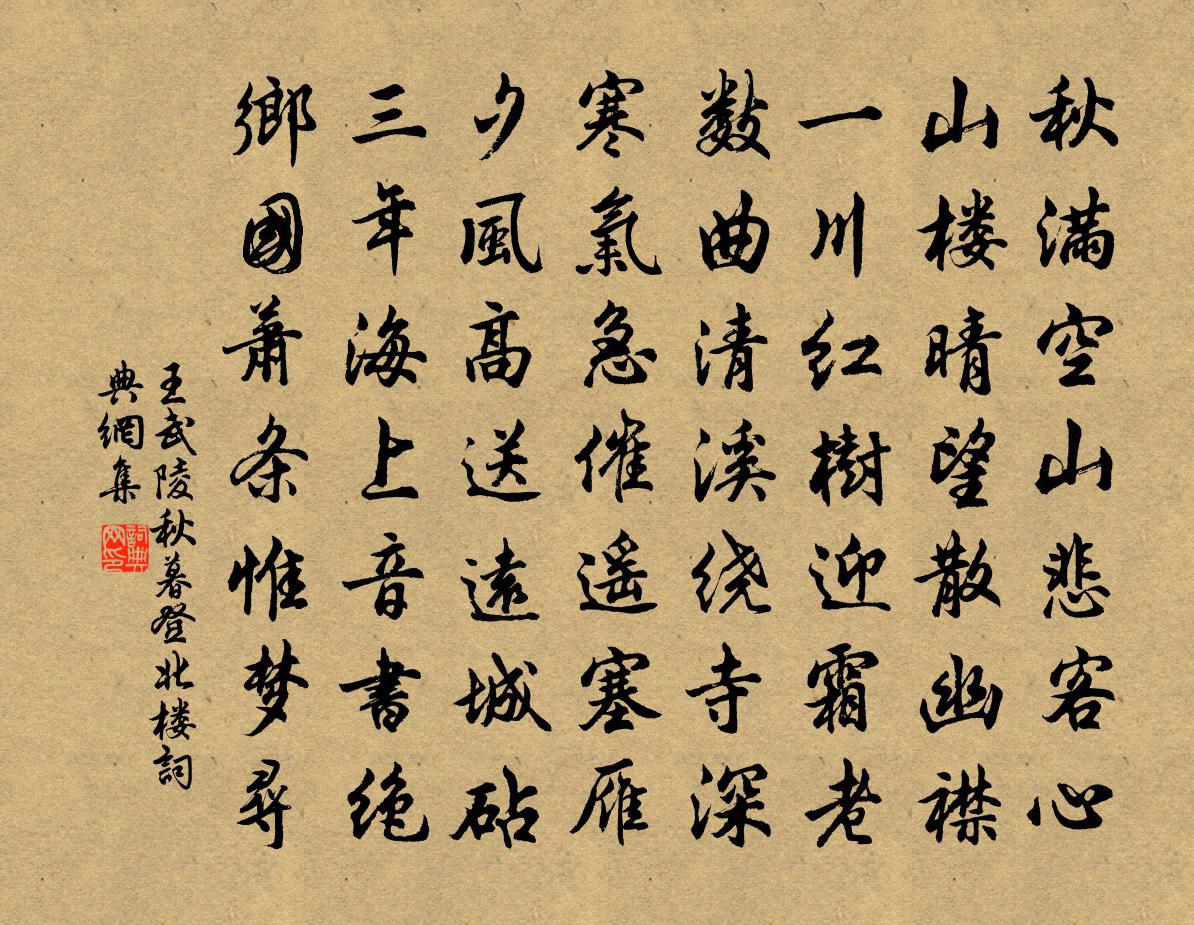 秋满空山悲客心
山楼晴望散幽襟
一川红樹迎霜老
数曲清溪绕寺深
寒氣急催遥塞雁
夕風高送遠城砧
三年海上音書绝
鄉國萧条惟梦尋
王武陵秋暮登北楼詞
典網集
詞典网印